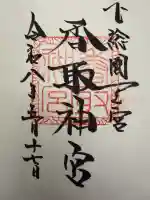 下総國一宮
香取神宮
令和八年三月十七日